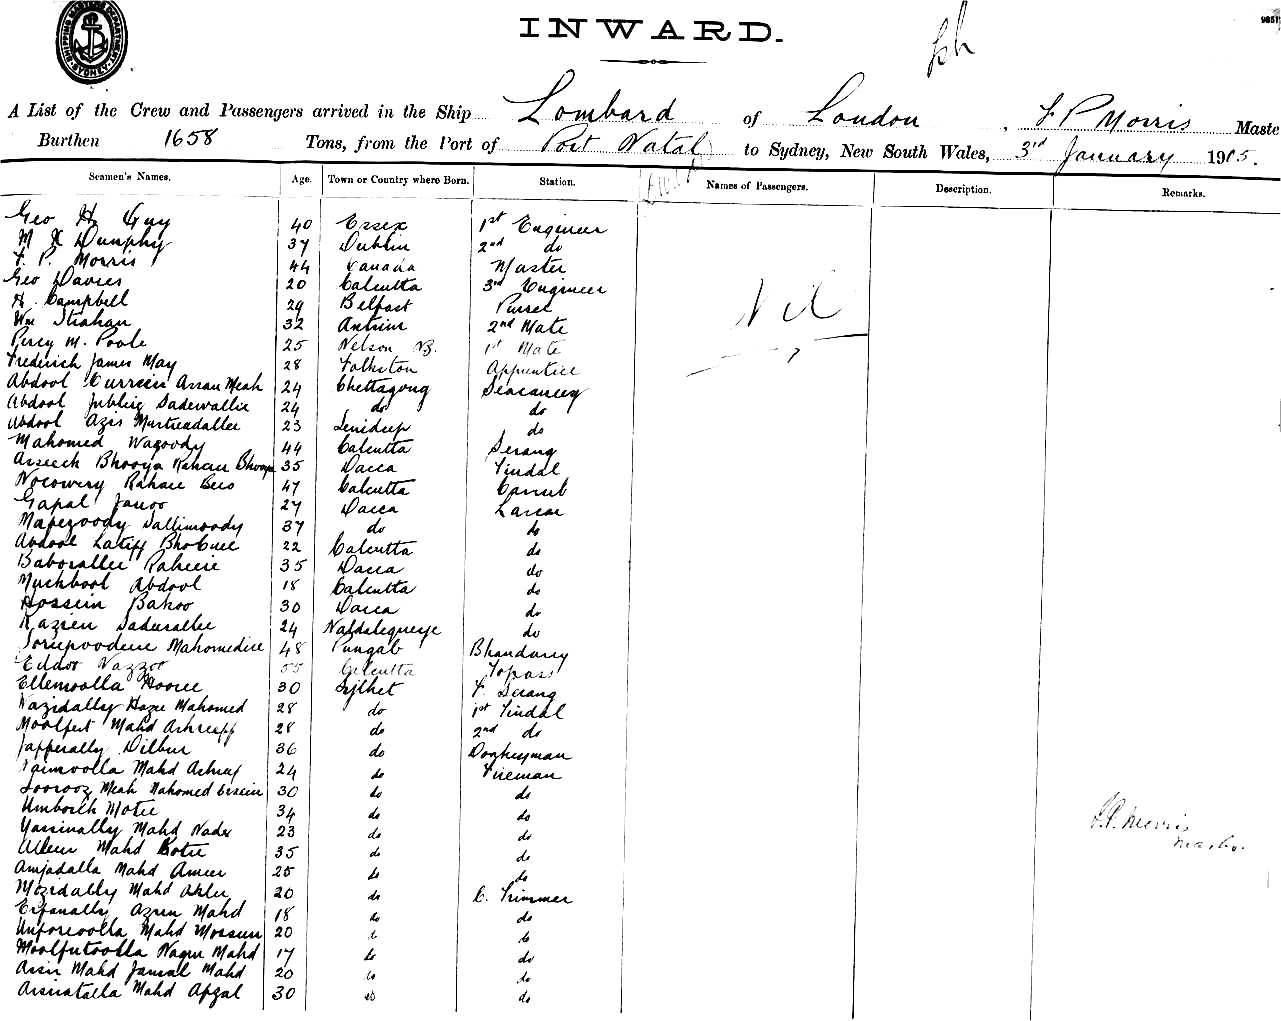 SHIPPING MASTER'S DEPARTMENT SYDNEY
INWARD.
A List of the Crew and Passengers arrived in the Ship Lombard of London, F P Morris Maste
Burthen 1658 Tons, from the Port of Port Natal to Sydney, New South Wales, 3rd January 1905.
Seamen's Names. Age. Town or Country where Born. Station. Names of Passengers. Description. Remarks.
Geo H Guy 40 Essex 1st Engineer
M K Dunphy 37 Dublin 2nd do
F. P. Morris 44 Canada Master
Geo Davies 20 Calcutta 3rd Engineer
H. Campbell 29 Belfast Purser
Wm Strahan 32 Antrim 2nd Mate
Nil
Percy M. Poole 25 Nelson 1st Mate
Frederick James May 28 Folkston Apprentice
Abdool Curreem Assan Meah 24 Chettagong Seacunny
Abdool Jubbie Sadewallie 24 do do
Abdool Azis Murtreadallee 23 do
Mahomed Wagoody 44 Calcutta Serang
Bhooya Rahau Bhooya 35 Dacca Tindal
Nocowry Rahau 47 Calcutta
Gapal 27 Dacca Lascar
Mapezoody Sallimoody 37 do do
Abdool Latiff 22 Calcutta do
Baborallee 35 Dacca do
Muckbool Abdool 18 Calcutta do
Hossein Bakoo 30 Dacca do
Kazien Sadurallee 24 do
Mahomedice 48 Pungab Bhandarry
Eddoo Nazzoo 55 Calcutta Topass
Ellemoolla 30 Sylhet F. Serang
Wazidally Hazee Mahomed 28 do 1st Tindal
Moolfert Mahd Ashreeff 28 do 2nd do
Japperally Dilbur 36 do Donkeyman
Taimoolla Mahd Ashref 24 do Fireman
Soorooz Meah Mahomed 30 do do
Umbosek Motee 34 do do
Yassinally Mahd Nader 23 do do
F.P. Morris
Mahd Kotee 35 do do
Master
Amjadalla Mahd Ameer 25 do do
Mozidally Mahd 20 do C. Trimmer
Erfanally Azeem Mahd 18 do do
Mahd Mossim 20 do
Moolfutoolla Nagee Mahd 17 do do
Assir Mahd Jamal Mahd 20 do
Mahd Afzal 30 do do